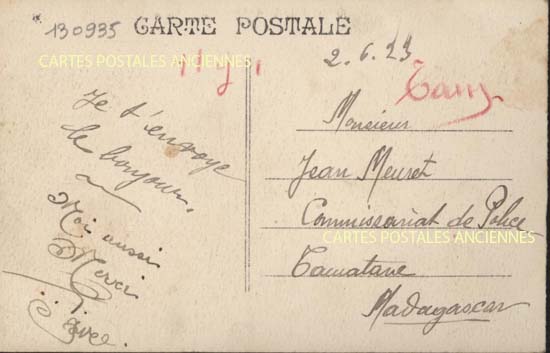 130935 CARTE POSTALE
CARTES POSTALES ANCIENNES
2.6.23
Je t'envoye
le bonjour.
Moi aussi
Merci
Monsieur
Jean Meuret
Commissariat de Police
CARTES POSTALES ANCIENNES
Tamatave
Madagascar